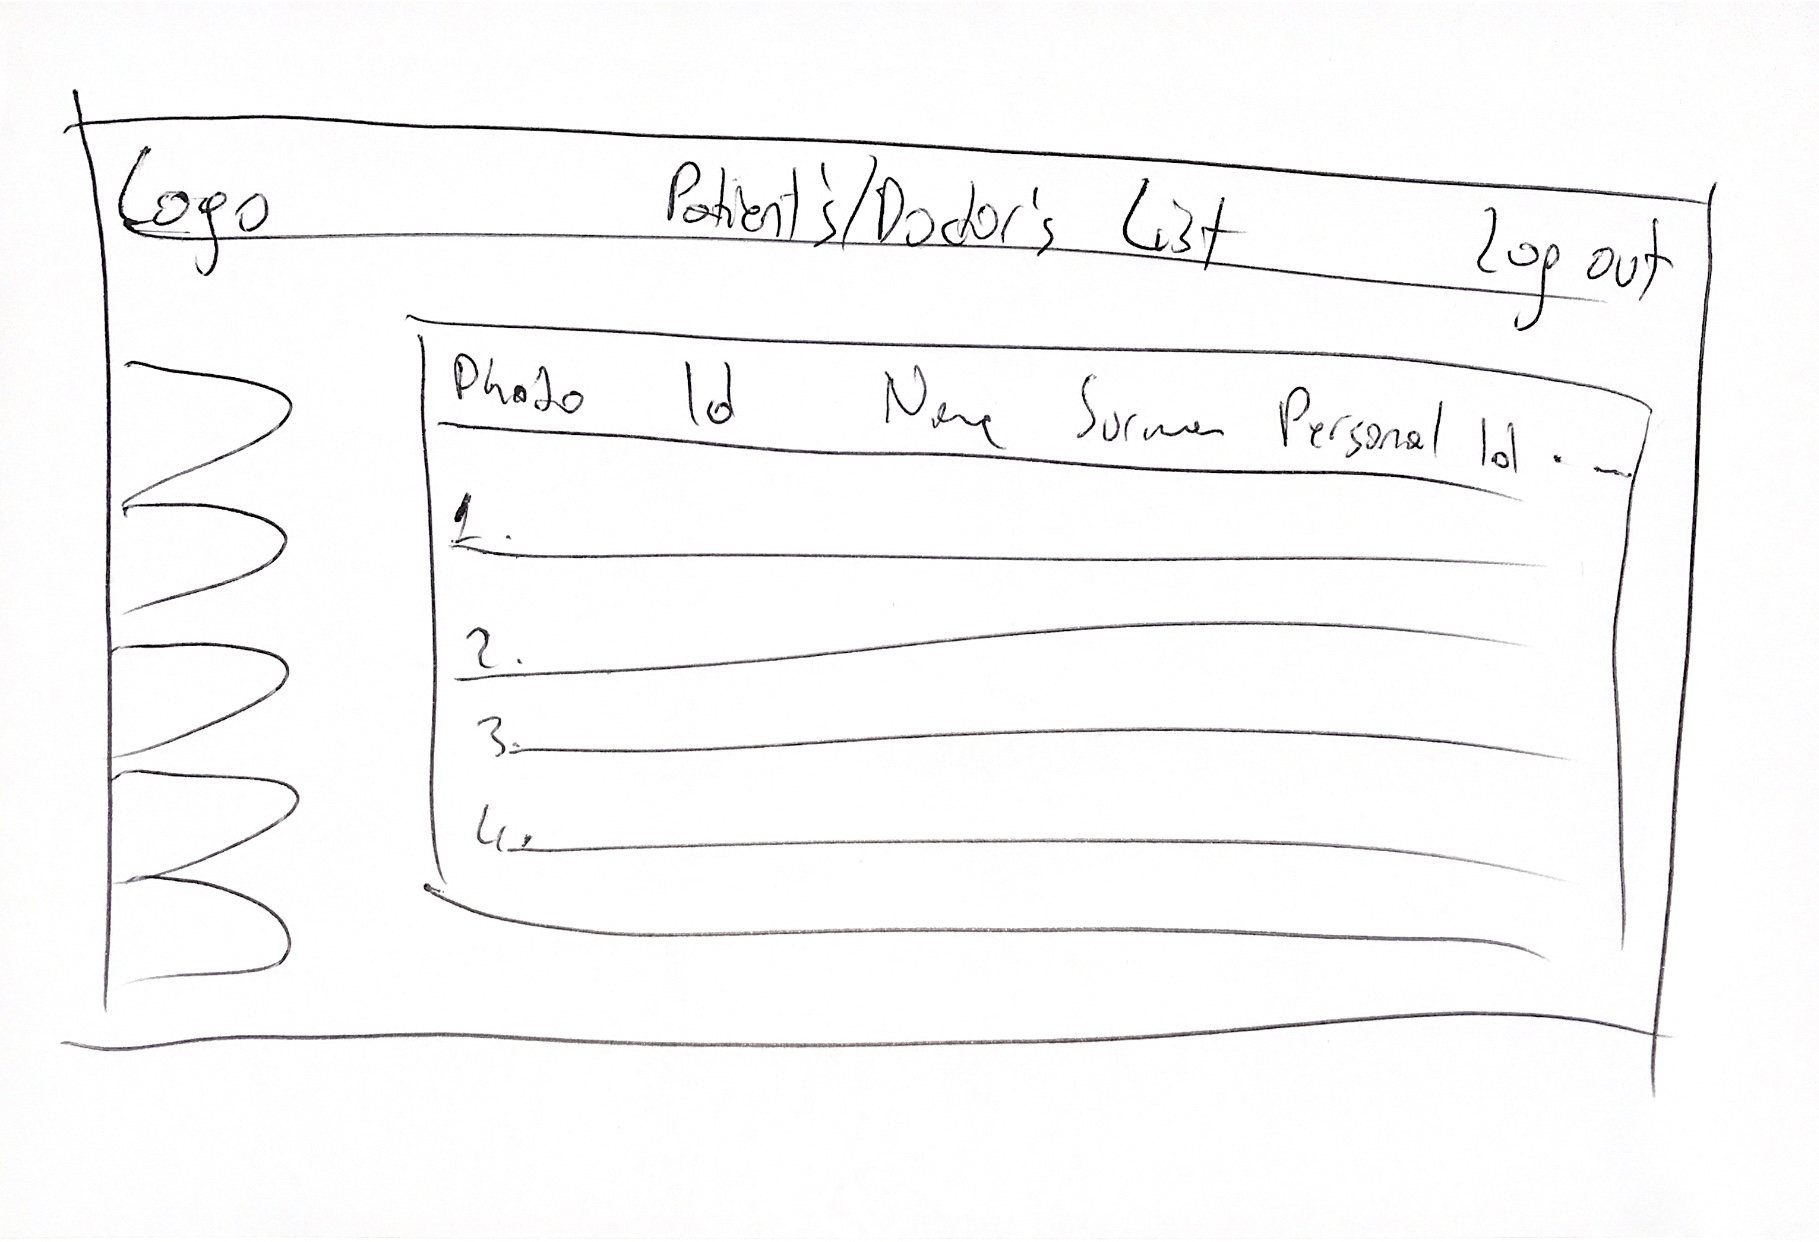 Logo Patient's/Doctor's List Log out
Photo Id Name Surname Personal Id . _
1.
2.
3.
4.